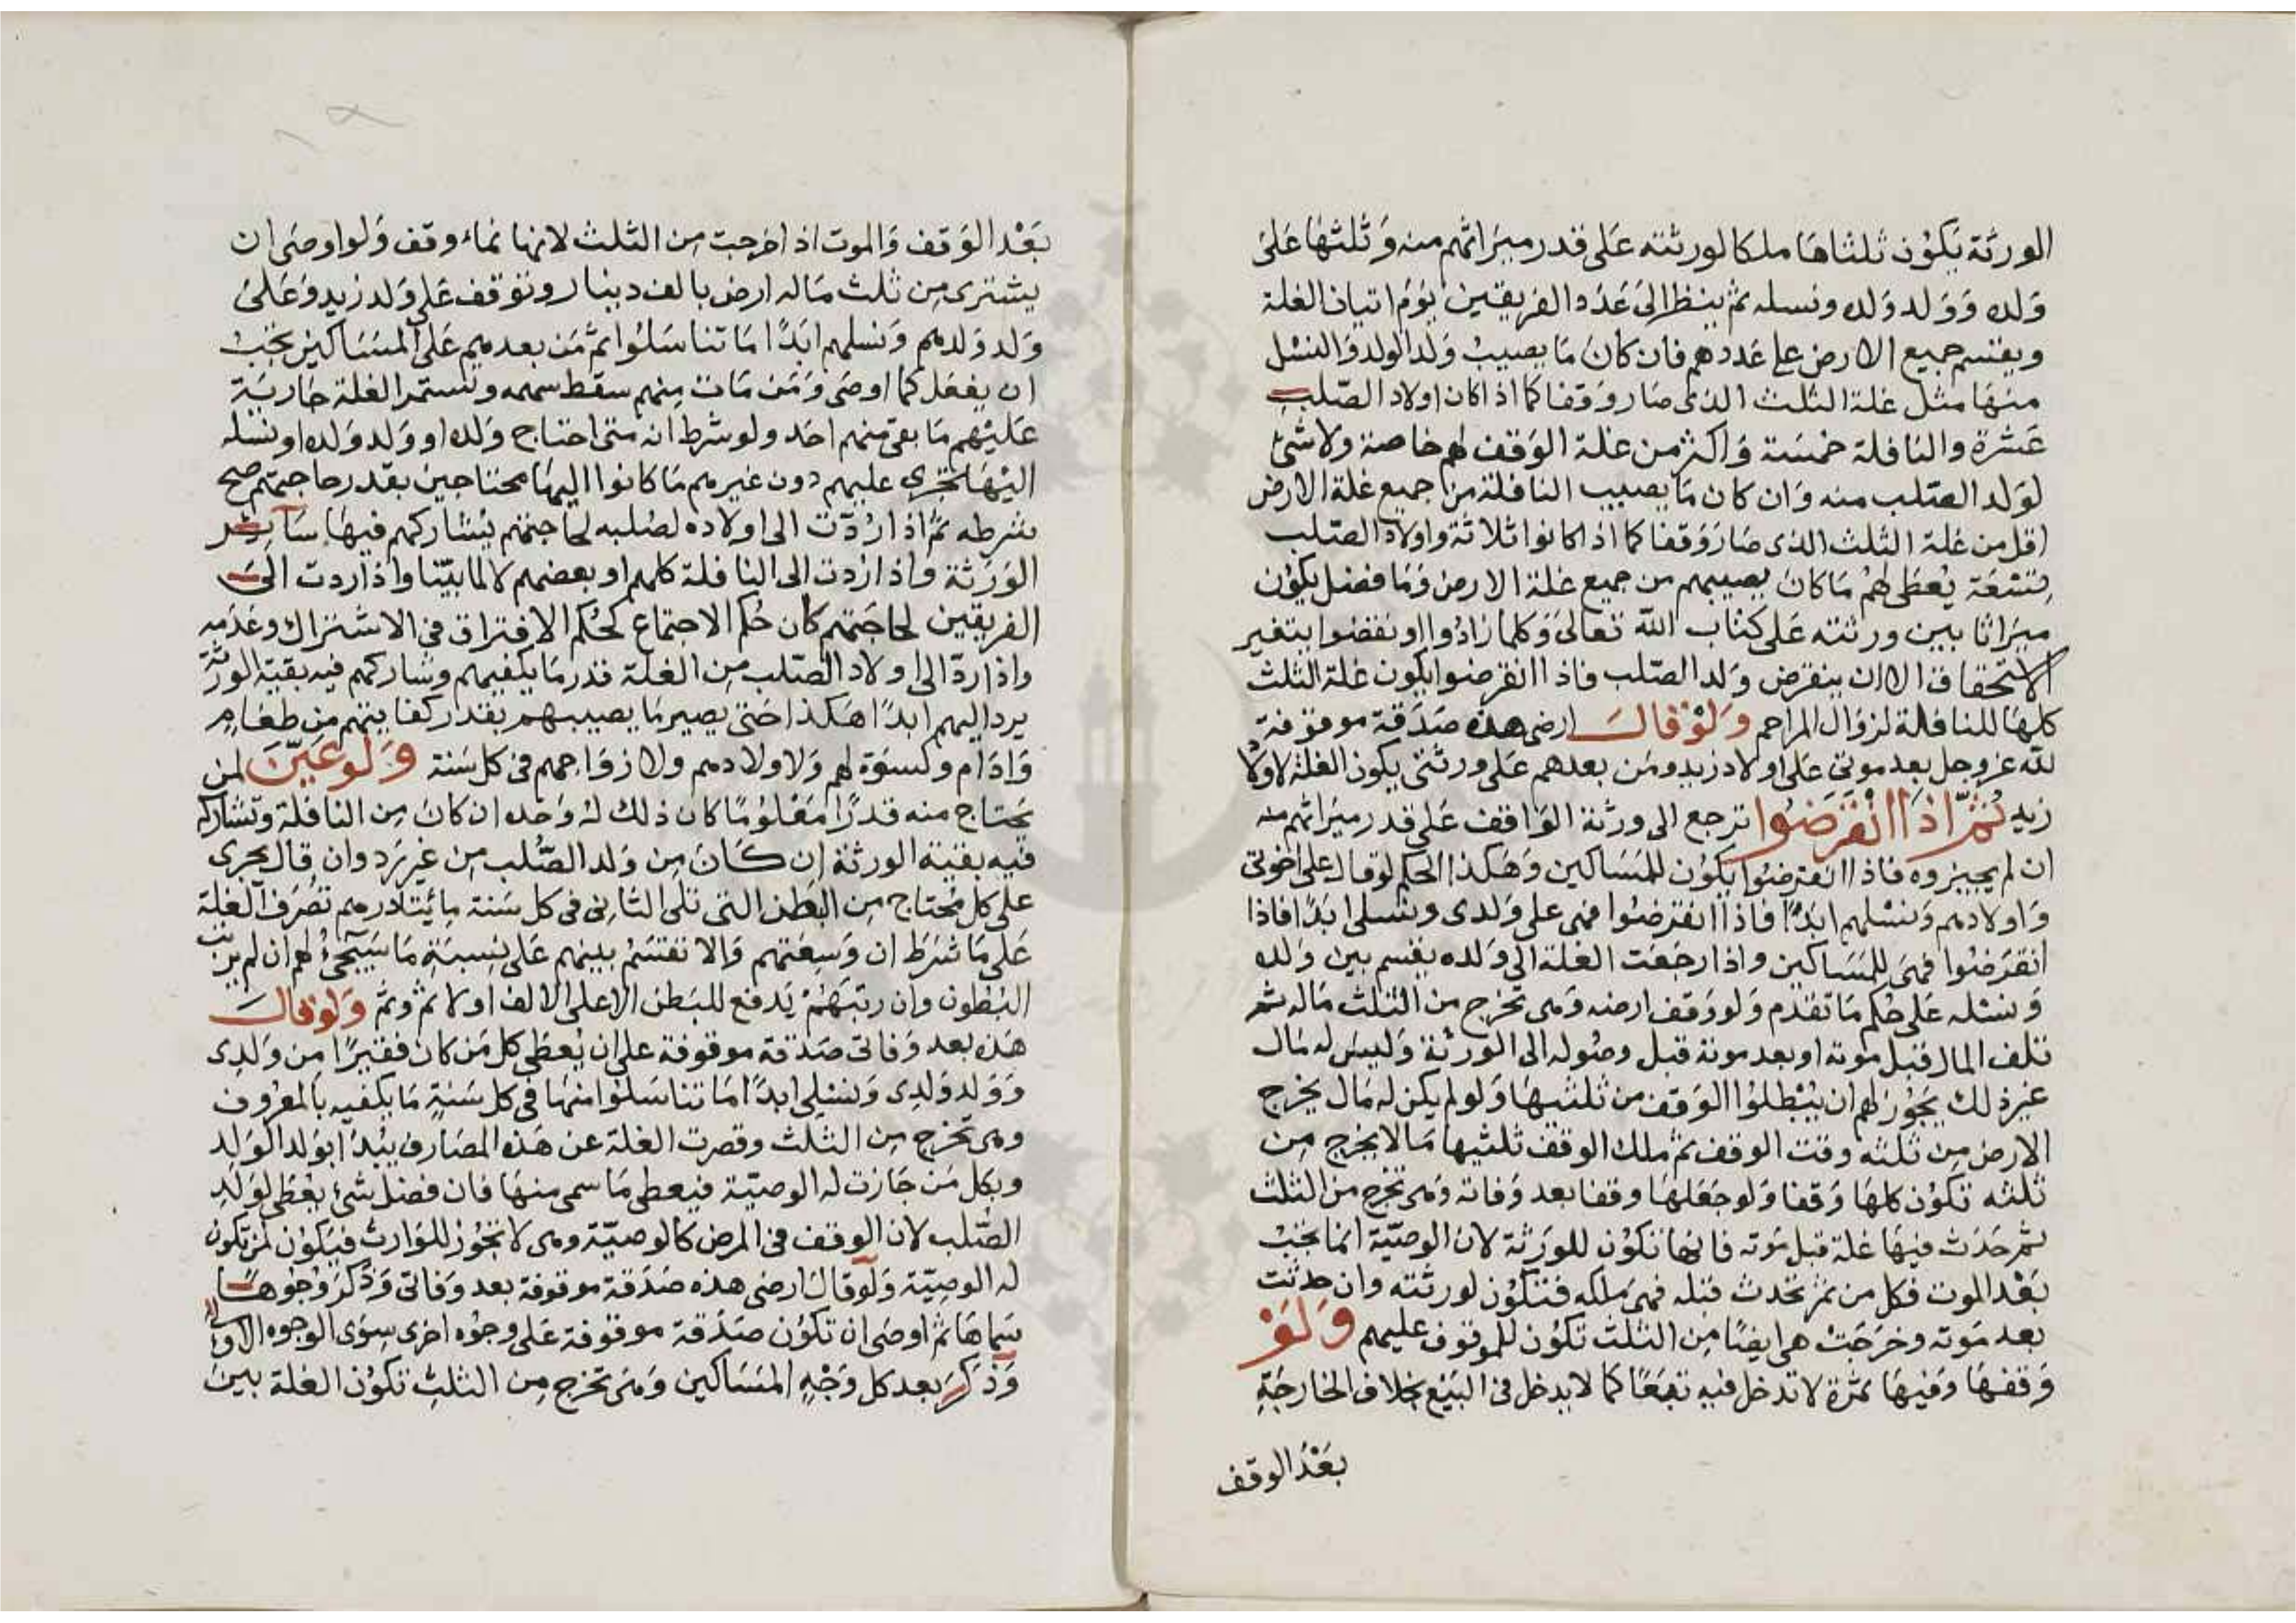 الورثة يكون ثلثاها ملكا لورثته على قدر ميراثهم منه وثلثها على
ولده وولد ولده ونسله ثم ينظر الى عدد الفريقين يوم اتيان الغلة
ويقسم جميع الارض على عددهم فان كان ما يصيب ولد الولد والنسل
منها مثل غلة الثلث الذى صار وقفا كما اذا كان اولاد الصلب
عشرة والنافلة خمسة واكثر من غلة الوقف لهم خاصة ولا شئ
لولد الصلب منه وان كان ما يصيب النافلة من جميع غلة الارض
اقل من غلة الثلث الذى صار وقفا كما اذا كانوا ثلاثة واولاد الصلب
تسعة يعطى لهم ما كان يصيبهم من جميع غلة الارض وما فضل يكون
ميراثا بين ورثته على كتاب الله تعالى وكلما زادوا او نقصوا يتغير
الاستحقاق الا ان ينقرض ولد الصلب فاذا انقرضوا يكون غلة الثلث
كلها للنافلة لزوال المزاحم ولو قال ارضى هذه صدقة موقوفة
لله عز وجل بعد موتى على اولاد زيد ومن بعدهم على ورثتى يكون الغلة لاولاد
زيد ثم اذا انقرضوا ترجع الى ورثة الواقف على قدر ميراثهم منه
ان لم يجيزوه فاذا انقرضوا يكون للمساكين وهكذا الحكم لو قال على اخوتى
واولادهم ونسلهم ابدا فاذا انقرضوا فهى على ولدى ونسلى ابدا فاذا
انقرضوا فهى للمساكين واذا رجعت الغلة الى ولده يقسم بين ولده
ونسله على حكم ما تقدم ولو وقف ارضه وهى تخرج من الثلث ماله ثم
تلف المال قبل موته او بعد موته قبل وصوله الى الورثة وليس له مال
غير ذلك يجوز لهم ان يبطلوا الوقف من ثلثيها ولو لم يكن له مال يخرج
الارض من ثلثه وقت الوقف ثم ملك الوقف ثلثيها مالا يخرج من
ثلثه تكون كلها وقفا ولو جعلها وقفا بعد وفاته وهى تخرج من الثلث
ثم حدث فيها غلة قبل موته فانها تكون للورثة لان الوصية انما تجب
بعد الموت فكل من ثمر تحدث قبله فهى ملكه فتكون لورثته وان حدثت
بعد موته وخرجت هى ايضا من الثلث تكون للموقوف عليهم ولو
وقفها وفيها ثمرة لا تدخل فيه تبعا كما لا يدخل فى البيع بخلاف الخارجة
بعد الوقف
بعد الوقف والموت اذ اخرجت من الثلث لانها نماء وقف ولو اوصى ان
يشترى من ثلث ماله ارض بالف دينار وتوقف على ولد زيد وعلى
ولد ولدهم ونسلهم ابدا ما تناسلوا ثم من بعدهم على المساكين يجب
ان يفعل كما اوصى ومن مات منهم سقط سهمه وتستمر الغلة جارية
عليهم ما بقى منهم احد ولو شرط انه متى احتاج ولده او ولد ولده او نسله
اليها تجرى عليهم دون غيرهم ما كانوا اليها محتاجين بقدر حاجتهم صح
شرطه ثم اذا ردت الى اولاده لصلبه لحاجتهم يشاركهم فيها سائر
الورثة واذا ردت الى النافلة كلهم او بعضهم لا لما بينا واذا ردت الى
الفريقين لحاجتهم كان حكم الاجتماع كحكم الافتراق فى الاشتراك وعدمه
واذا رد الى اولاد الصلب من الغلة قدر ما يكفيهم وشاركهم فيه بقية الورثة
يرد اليهم ابدا هكذا حتى يصير ما يصيبهم بقدر كفايتهم من طعام
وادام وكسوة لهم ولاولادهم ولازواجهم فى كل سنة ولو عين لمن
يحتاج منه قدرا معلوما كان ذلك له وحده ان كان من النافلة وتشاركه
فيه بقية الورثة ان كان من ولد الصلب من غير رد وان قال يجرى
على كل محتاج من البطن التى تلى الثانى فى كل سنة مائتا درهم تصرف الغلة
على ما شرط ان وسعتهم والا تقتسم بينهم على نسبة ما سيجئ لهم ان لم يرتب
البطون وان رتبهم يدفع للبطن الاعلى الالف اولا ثم وثم ولو قال
هذه بعد وفاتى صدقة موقوفة على ان يعطى كل من كان فقيرا من ولدى
وولد ولدى ونسلى ابدا ما تناسلوا منها فى كل سنة ما يكفيه بالمعروف
وهى تخرج من الثلث وقصرت الغلة عن هذه المصارف يبدا بولد الولد
وبكل من جازت له الوصية فيعطى ما سمى منها فان فضل شئ يعطى لولد
الصلب لان الوقف فى المرض كالوصية وهى لا تجوز للوارث فيكون لمن تكون
له الوصية ولو قال ارضى هذه صدقة موقوفة بعد وفاتى وذكر وجوها
سماها ثم اوصى ان تكون صدقة موقوفة على وجوه اخرى سوى الوجوه الاولى
وذكر بعد كل وجه المساكين وهى تخرج من الثلث تكون الغلة بين